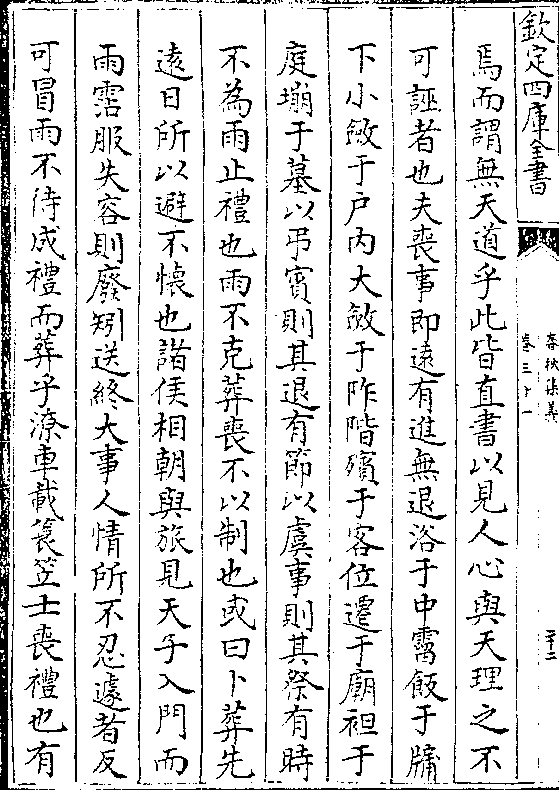 欽定四庫全書
春秋集義
卷三十一
二十二
焉而謂無天道乎此皆直書以見人心與天理之不
可誣者也夫喪事即遠有進無退浴于中霤飯于牖
下小斂于戶内大斂于阼階殯于客位遷于廟袒于
庭塴于墓以弔賓則其退有節以虞事則其祭有時
不為雨止禮也雨不克葬喪不以制也或曰卜葬先
遠日所以避不懷也諸侯相朝與旅見天子入門而
雨霑服失容則廢矧送終大事人情所不忍遽者反
可冒雨不待成禮而葬乎潦車載簑笠士喪禮也有